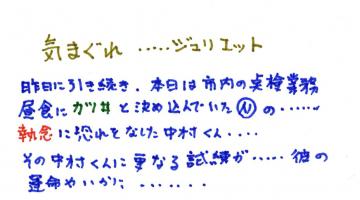 気まぐれ ‥‥‥ジュリエット
昨日に引き続き、本日は市内の点検業務
昼食にカツ丼と決め込んでいたⓃの‥‥‥
執念に恐れをなした中村くん‥‥
その中村くんに更なる試練が‥‥‥彼の
運命やいかに‥‥‥‥